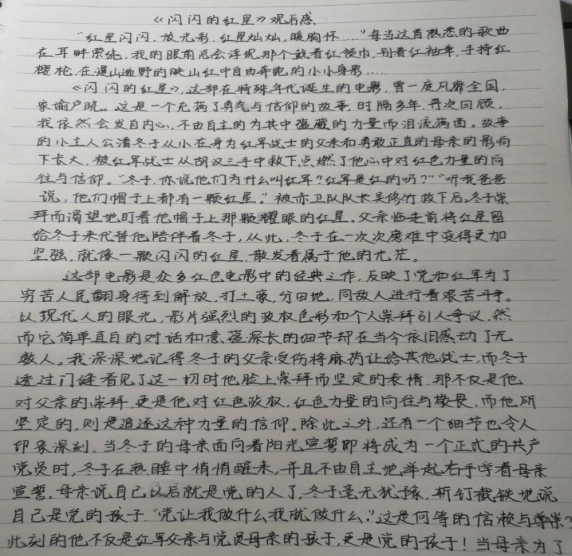 《闪闪的红星》观后感
"红星闪闪,放光彩,红星灿灿,暖胸怀……"每当这首熟悉的歌曲
在耳畔萦绕,我的眼前总会浮现那个戴着红领巾,别着红袖章,手持红
樱枪在漫山遍野的映山红中自由奔跑的小小身影……
《闪闪的红星》,这部在特殊年代诞生的电影,曾一度风靡全国,
家喻户晓。这是一个充满了勇气与信仰的故事,时隔多年,再次回顾,
我依然会发自内心,不由自主的为其中蕴藏的力量而泪流满面。故事
的小主人公潘冬子从小在身为红军战士的父亲和勇敢正直的母亲的影响
下长大,被红军战士从胡汉三手中救下点燃了他心中对红色力量的向
往与信仰。"冬子,你说他们为什么叫红军?红军是红的吗?""听我爸爸
说,他们帽子上都有一颗红星。"被赤卫队队长吴修竹救下后,冬子崇
拜而渴望地盯着他帽子上那颗耀眼的红星。父亲临走前将红星留
给冬子来代替他陪伴着冬子,从此,冬子在一次次磨难中变得更加
坚强,就像一颗闪闪的红星,散发着属于他的光芒。
这部电影是众多红色电影中的经典之作,反映了党和红军为了
穷苦人民翻身得到解放,打土豪,分田地,同敌人进行着艰苦斗争。
以现代人的眼光,影片强烈的政权色彩和个人崇拜引人争议,然
而它简单直白的对话和意蕴深长的细节却在当今依旧感动了无
数人。我深深地记得冬子的父亲受伤将麻药让给其他战士,而冬子
透过门缝看见了这一切时他脸上崇拜而坚定的表情,那不仅是他
对父亲的崇拜,更是他对红色政权,红色力量的向往与敬畏,而他所
坚定的,则是追逐这种力量的信仰,除此之外,还有一个细节也令人
印象深刻,当冬子的母亲面向着阳光宣誓即将成为一个正式的共产
党员时,冬子在熟睡中悄悄醒来,并且不由自主地举起右手学着母亲
宣誓,母亲说自己以后就是党的人了,冬子毫无犹豫,斩钉截铁地说
自己是党的孩子,"党让我做什么我就做什么",这是何等的信赖与尊崇?
此刻的他不是红军父亲与党员母亲的孩子,更是党的孩子!当母亲为了